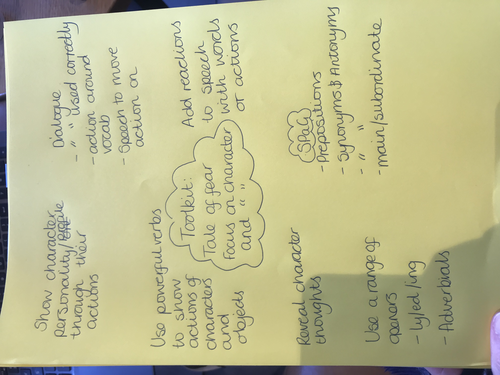 Show character
personality/
through their
actions
Dialogue
- " " Used correctly
- action around
vocab
- Speech to move
action on
Use powerful verbs
to show
actions of
characters
and
objects
Toolkit:
Tale of fear
Focus on character
and " "
Add reactions
to speech
with words
or actions
Reveal character
thoughts
SPaG
- Prepositions
- Synonyms & Antonyms
- " "
- main/subordinate
Use a range of
openers
- ly/ed/ing
- Adverbials